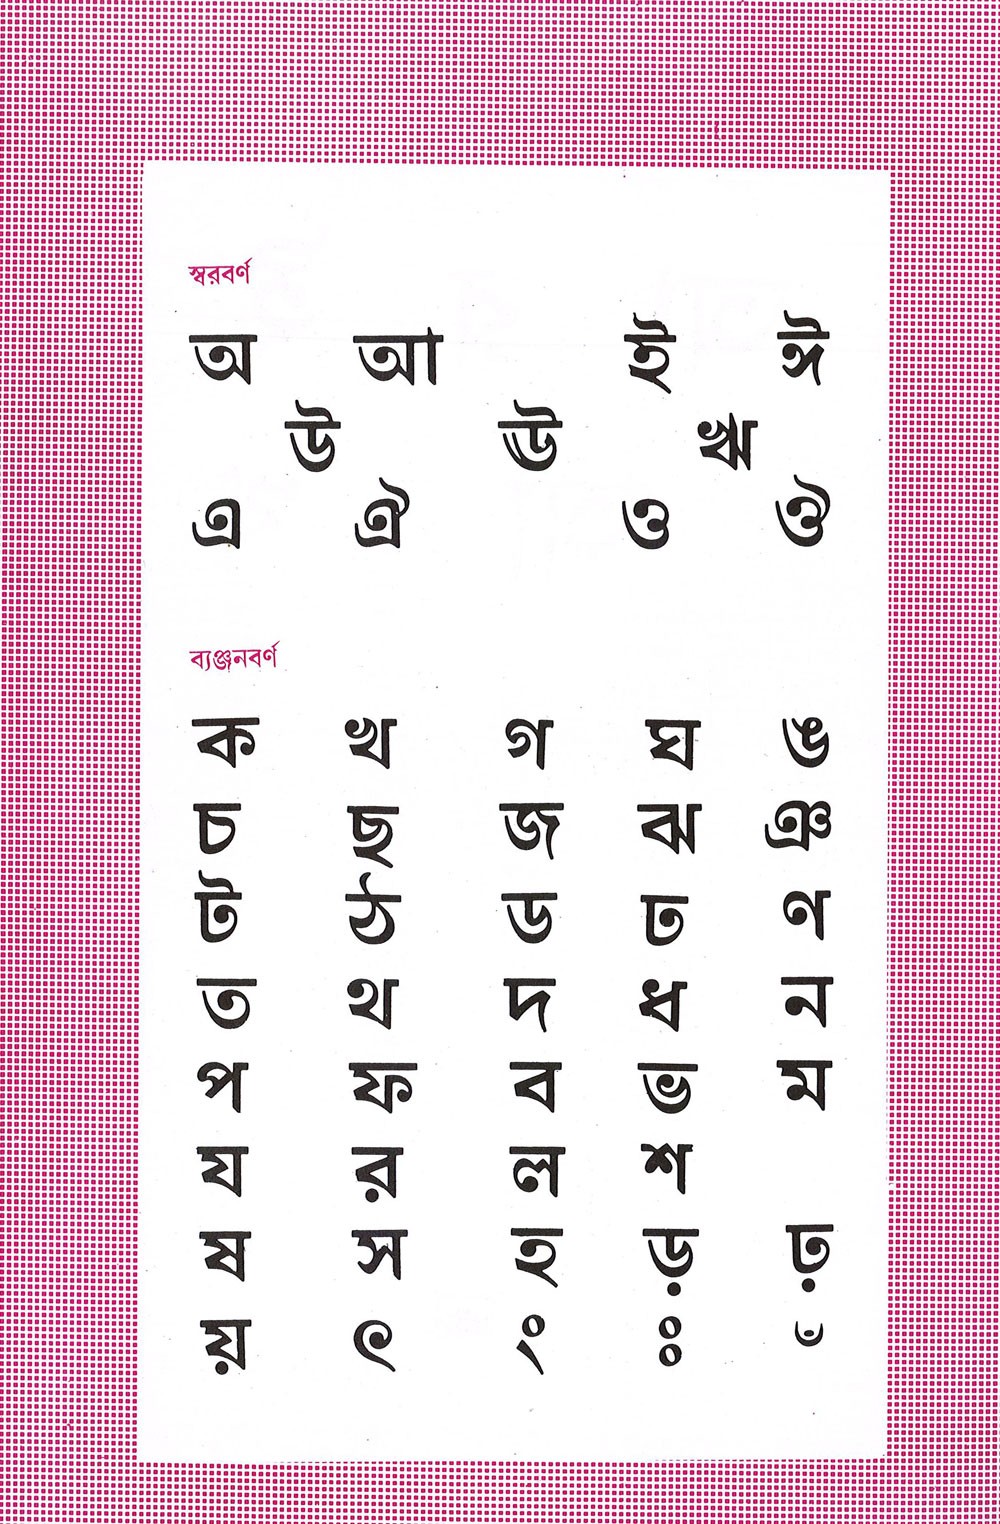 স্বরবর্ণ
অ আ ই ঈ
উ ঊ ঋ
এ ঐ ও ঔ
ব্যঞ্জনবর্ণ
ক খ গ ঘ ঙ
চ ছ জ ঝ ঞ
ট ঠ ড ঢ ণ
ত থ দ ধ ন
প ফ ব ভ ম
য র ল শ
ষ স হ ড় ঢ়
য় ৎ ং ঃ ঁ